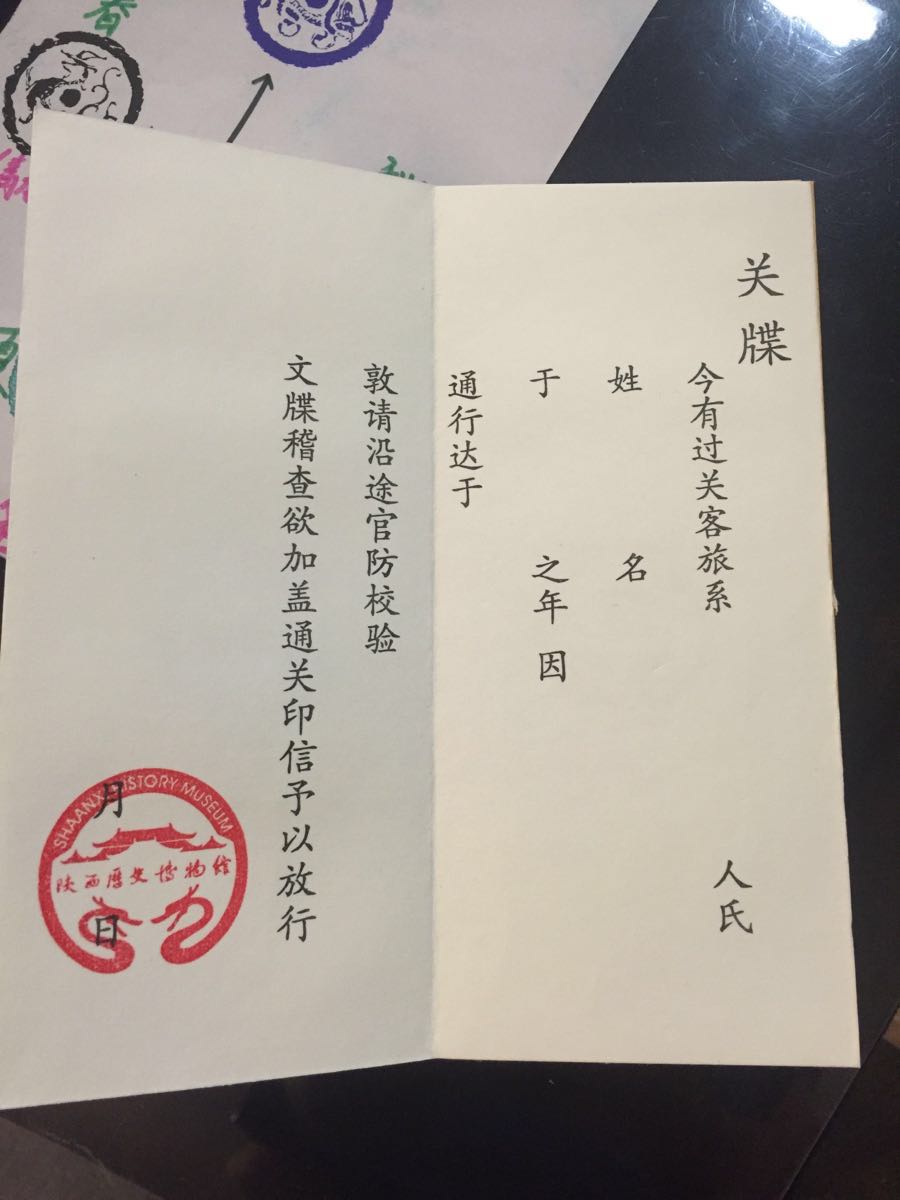 关牒
今有过关客旅系 人氏
姓 名
于 之年 因
通行达于
敦请沿途官防校验
文牒稽查欲加盖通关印信予以放行
月 日
SHAANXI HISTORY MUSEUM
陕西历史博物馆
春